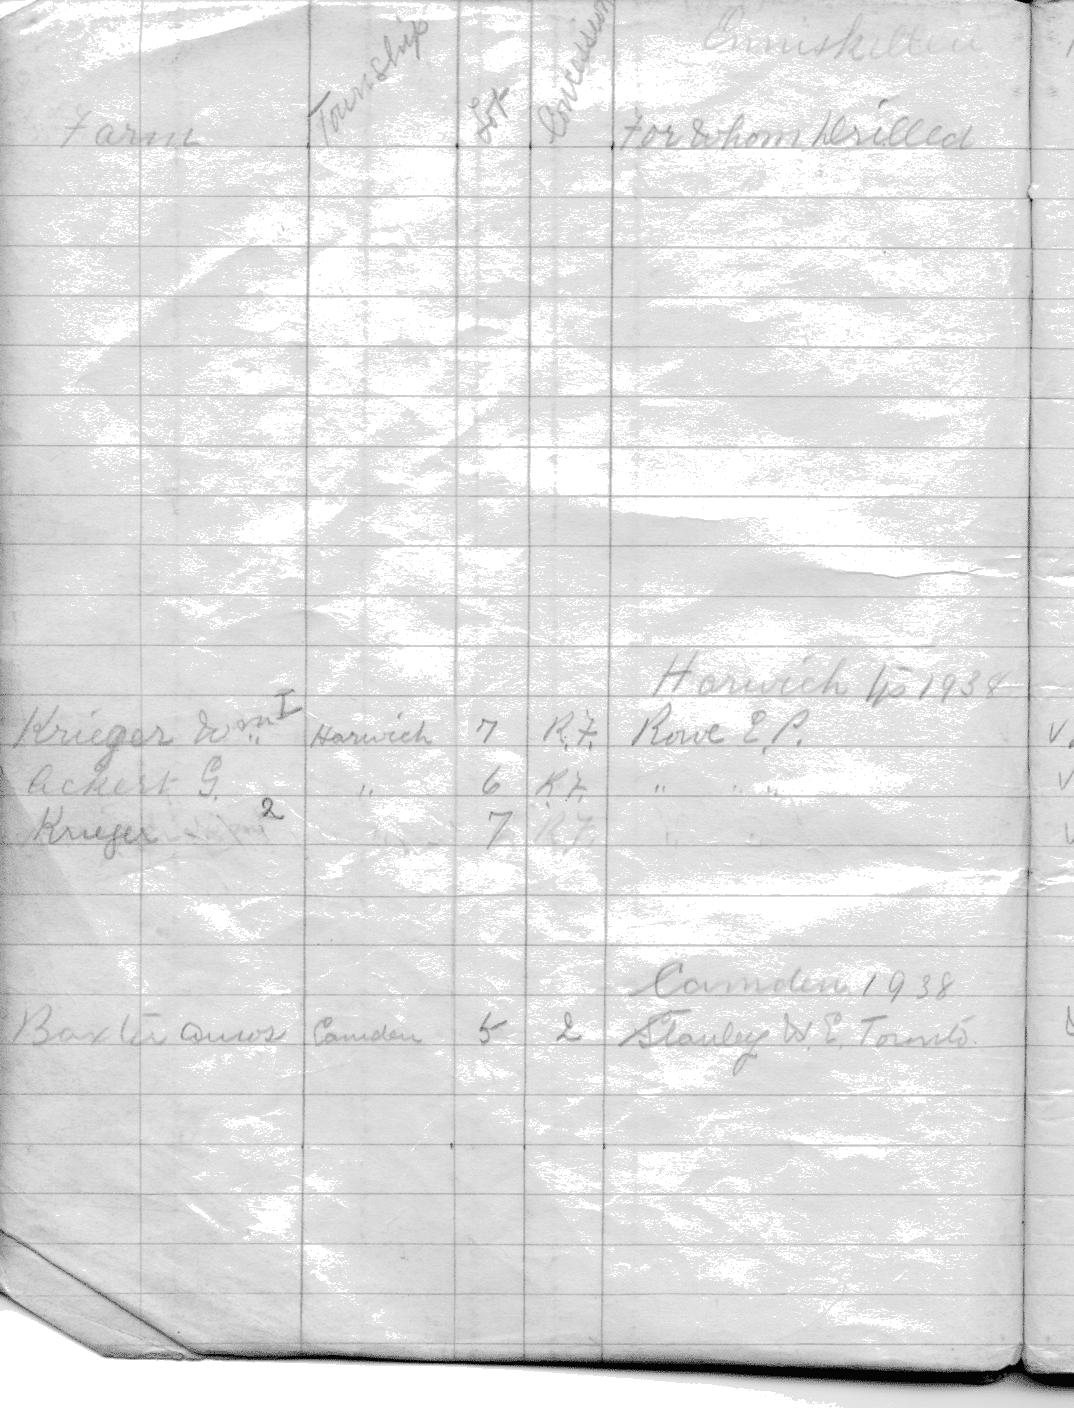 Enniskillen
Farm Township Lot Concession For Whom Drilled
Harwich Tp 1938
Krieger Wm I Harwich 7 R.F. Rowe E.P.
Ackert G. " 6 R.F. " " "
Krieger 2 7 R.F.
Camden 1938
Baxter Camden 5 2 Stanley W.E. Toronto